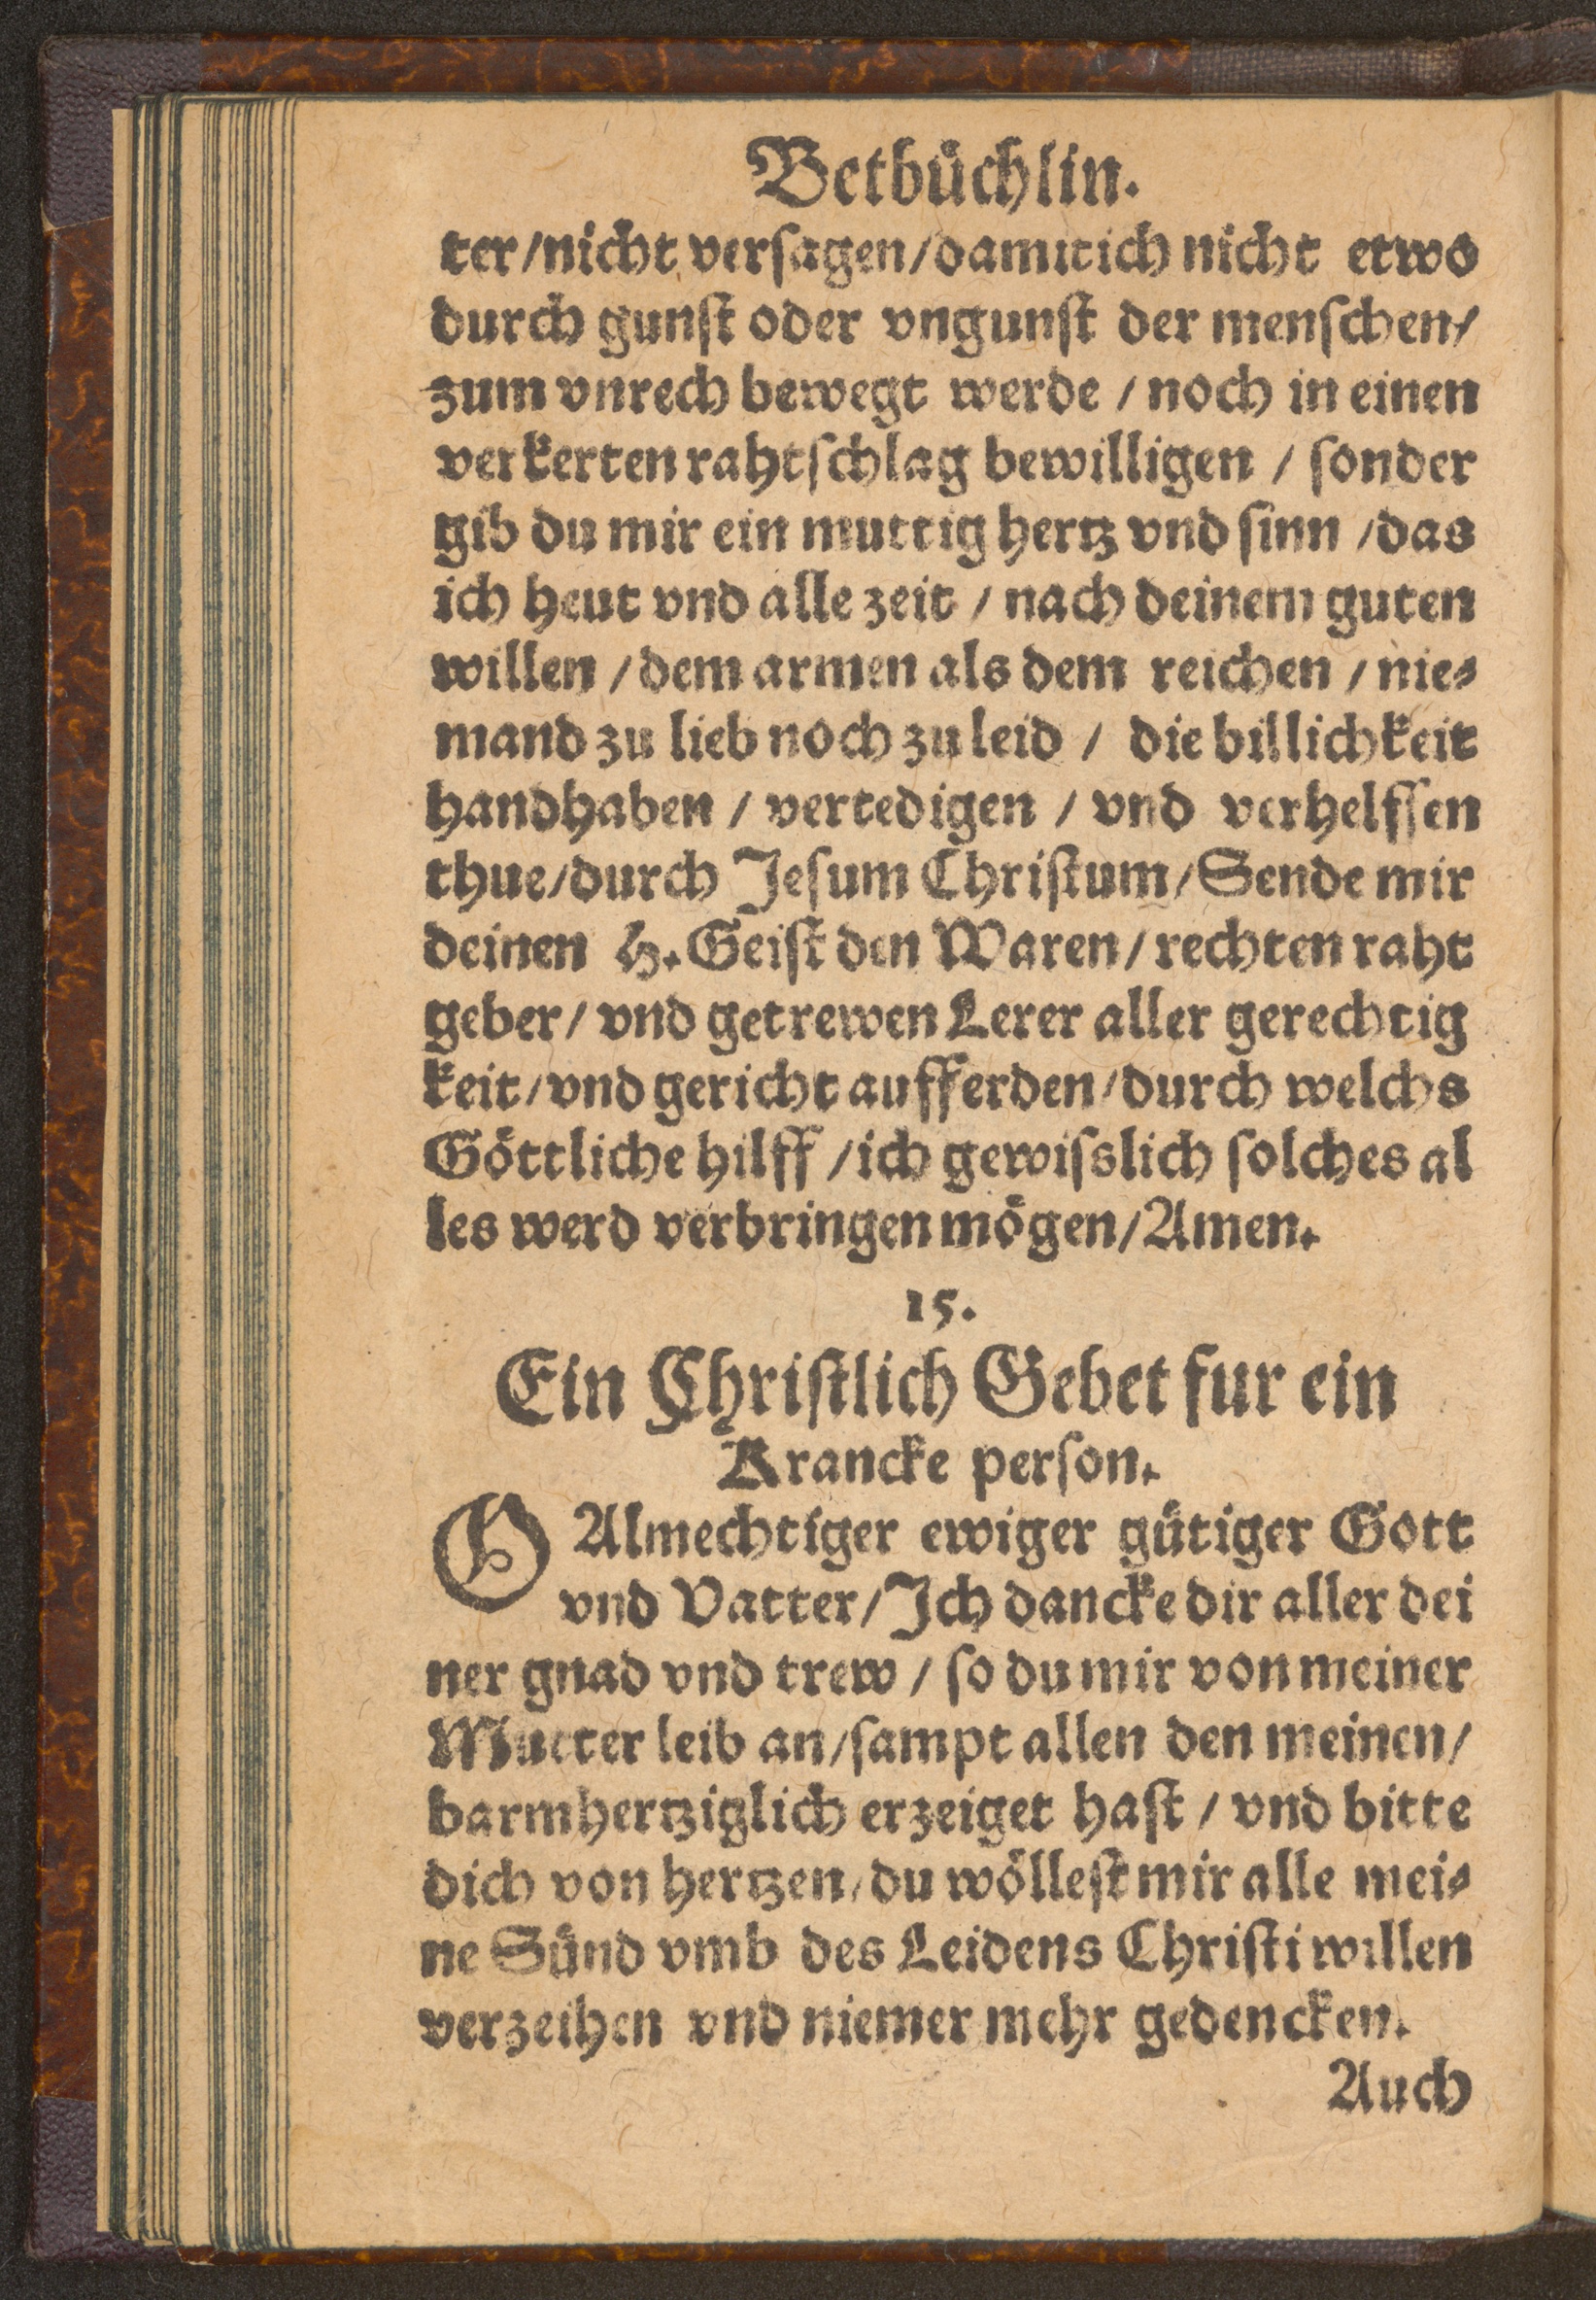 Betbüchlin.
ter/nicht versagen/damit ich nicht etwo
durch gunst oder vngunst der menschen/
zum vnrech bewegt werde / noch in einen
verkerten rahtschlag bewilligen / sonder
gib du mir ein muttig hertz vnd sinn /das
ich heut vnd alle zeit / nach deinem guten
willen / dem armen als dem reichen / nie⸗
mand zu lieb noch zu leid / die billichkeit
handhaben / vertedigen / vnd verhelfſen
thue/durch Jesum Christum/Sende mir
deinen H. Geist den Waren/rechten raht
geber/ vnd getrewen Lerer aller gerechtig
keit/vnd gericht aufferden/durch welchs
Göttliche hilff /ich gewisslich solches al
les werd verbringen mögen/Amen.
15.
Ein Christlich Gebet fur ein
Krancke person.
O Almechtiger ewiger gütiger Gott
vnd Vatter/Ich dancke dir aller dei
ner gnad vnd trew / so du mir von meiner
Mutter leib an/sampt allen den meinen/
barmhertziglich erzeiget hast / vnd bitte
dich von hertzen/du wöllest mir alle mei⸗
ne Sünd vmb des Leidens Christi willen
verzeihen vnd niemer mehr gedencken.
Auch